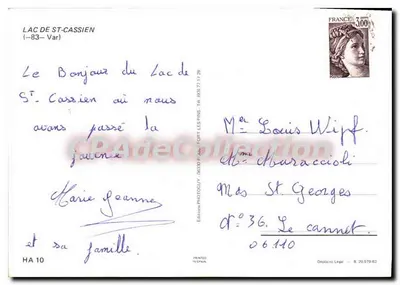 LAC DE ST-CASSIEN
(-83- Var)
Le Bonjour du Lac de
St. Cassien où nous
avons passé la
journée
Marie Jeanne
et sa famille.
HA 10
FRANCE
3,00
Mr Louis Wipf.
Mme Maraccioli
Mas St. Georges
N° 36. Le Cannet.
06110
CPA Collection